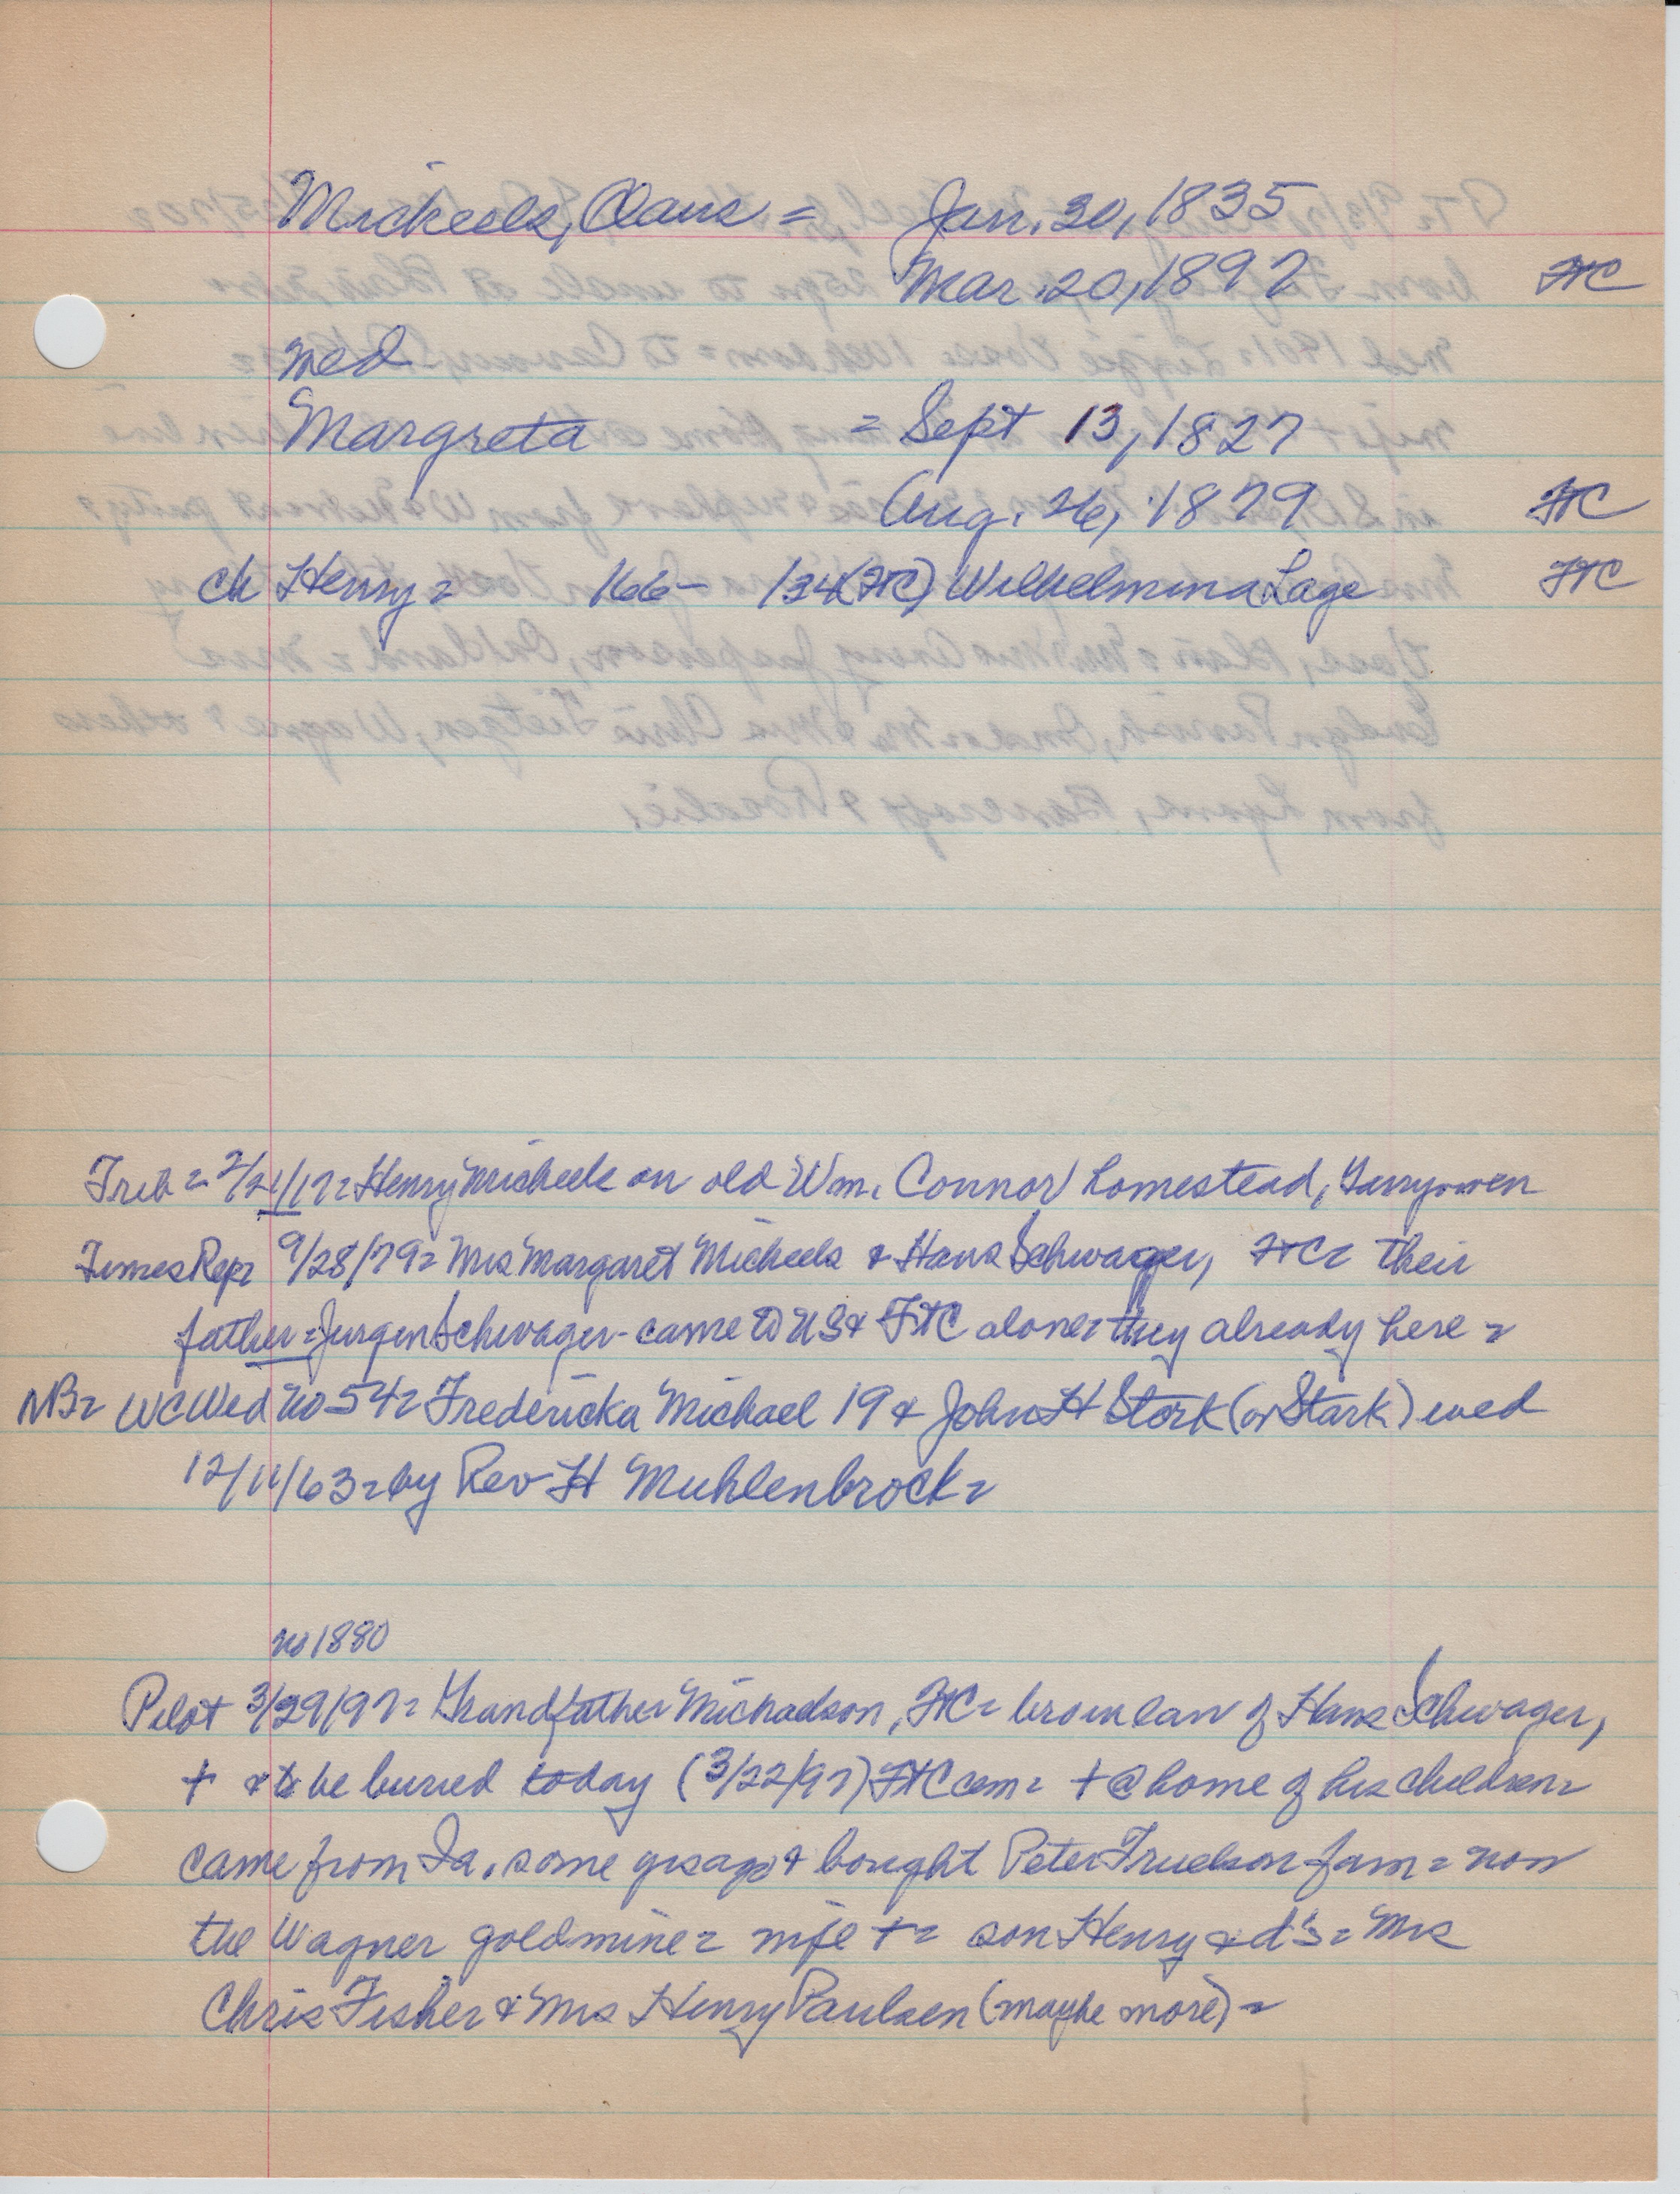 Micheels, Claus = Jan. 30, 1835
Mar. 20, 1897 FTC
med
Margreta = Sept 13, 1827
Aug. 26, 1879 FTC
ch Henry = 166- 134 (FTC) Wilhelmina Lage FTC
Trib = 2/21/17 = Henry Micheels on old Wm. Connor homestead, Garryowen
Times Rep = 9/28/79 = Mrs Margaret Micheels & Hans Schwager, FTC = their
father = Jurgen Schwager - came to US & FTC alone = they already here =
NB = WC Wed no 54 = Fredericka Michael 19 & John H Stork (or Stark) wed
12/11/63 = by Rev H Muhlenbrock =
no 1880
Pilot 3/29/97 = Grandfather Michaelson, FTC = bro in law of Hans Schwager,
+ & to be buried today (3/22/97) FTC cem = + @ home of his children =
came from Ia. some yrs ago & bought Peter Truelson farm = now
the Wagner goldmine = wife + = son Henry & d's = Mrs
Chris Fisher & Mrs Henry Paulsen (maybe more) =